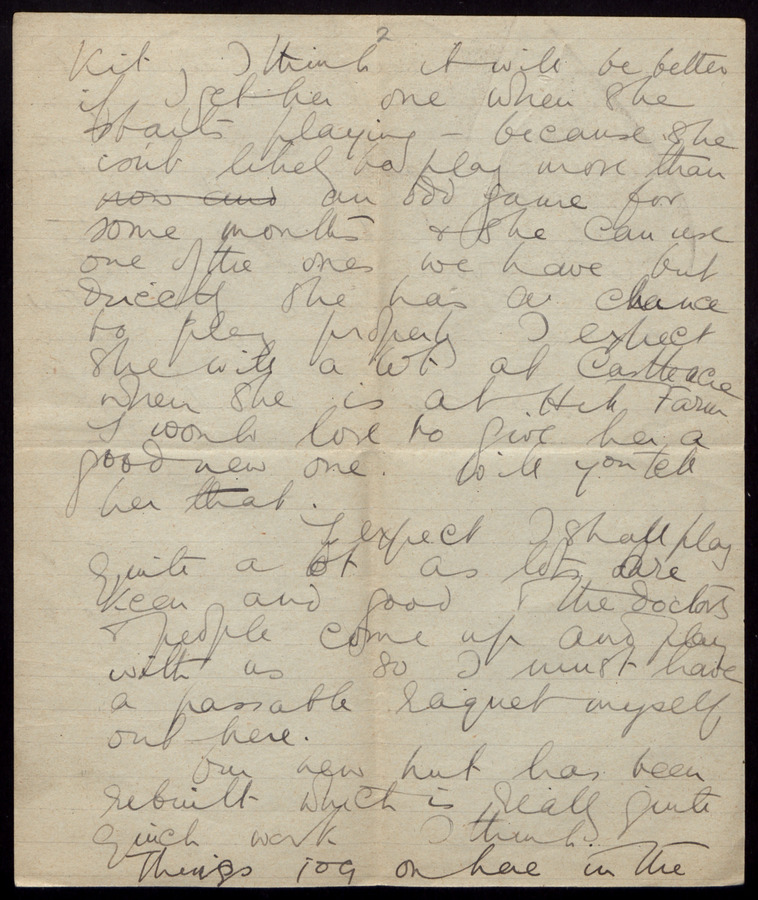 2
Kit, I think it will be better
if I get her one when she
starts playing – because she
isn't likely to play more than
now and an odd game for
some months & she can use
one of the ones we have but
directly she has a chance
to play properly I expect
she will a lot at Castleacre
when she is at Farm
I would love to give her a
good new one. Will you tell
her that.
I expect I shall play
quite a lot as lots are
keen and good & the doctors
& people come up and play
with us so I must have
a passable raquet myself
out here.
Our new hut has been
rebuilt which is really quite
quick work I think.
Things jog on here in the